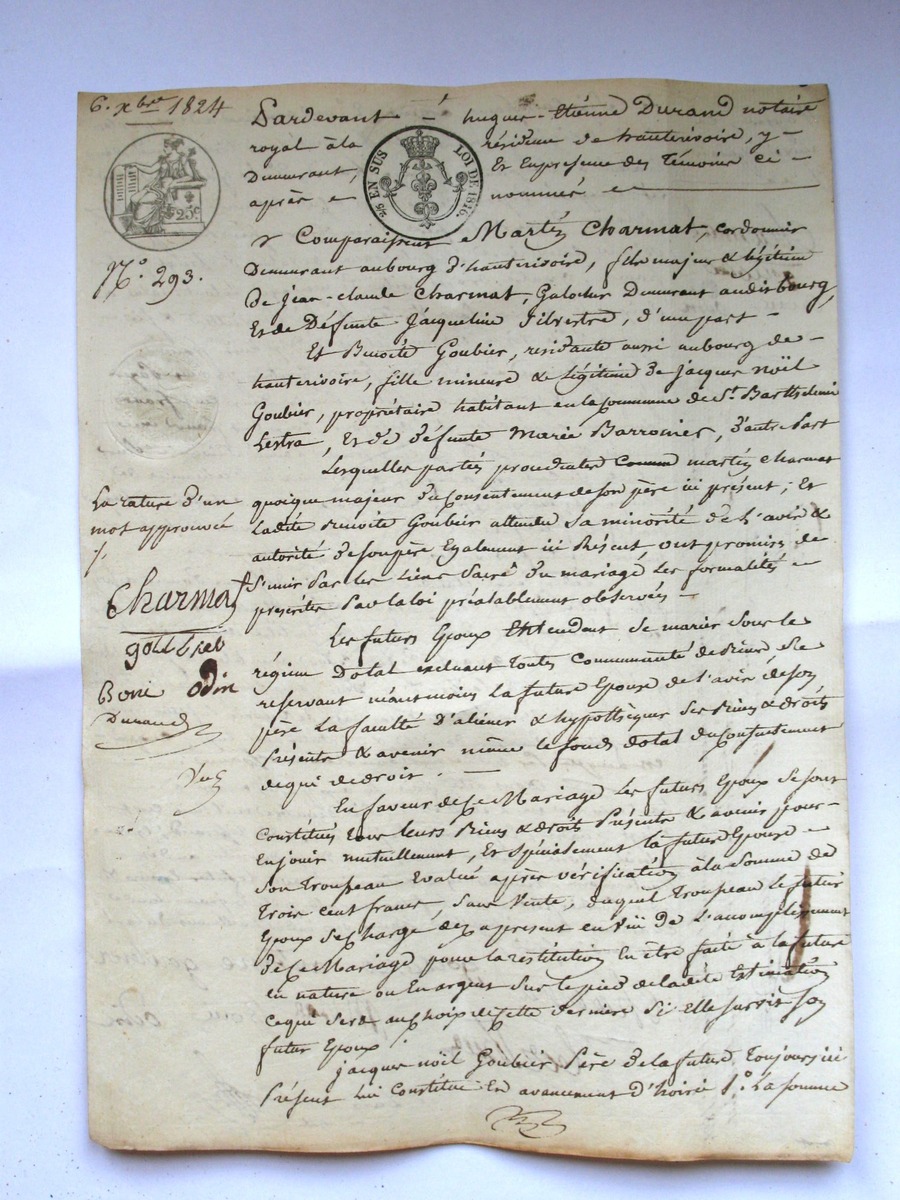 6. xbre 1824
Pardevant hugues-Etiénne Durand notaire
royal à la résidence de hauterivoire, y
Demeurant, Et En presence des Témoins ci
après nommés
EN SUS LOI DE 1816.
25c
Nº. 293.
Comparaissent Martin Charmat, cordonnier
Demeurant au bourg d'hauterivoire, fils majeur & légitime
de jean-claude Charmat, Galocher Demeurant audit bourg,
Et de Défunte Jacqueline Silvestre, d'une part
Et Benoite Goubier, residante aussi au bourg de
hauterivoire, fille mineure & légitime de Jacques Noël
Goubier, propriétaire habitant en la Commune de St. Barthelemi
Lestra, Et de défunte Marie Barronier, d'autre Part
Lesquelles parties procedantes martin charmat
quoique majeur du Consentement de son père ici présent; Et
Ladite Benoite Goubier attendu sa minorité de l'avis &
autorité de son père Egalement ici Présent, ont promis de
S'unir Par les Liens Sacrés du mariage les formalités
prescrites Par la loi préalablement observées
La rature d'un
mot approuvée
Charmat
goubier
Boni Odin
Durand
Les futurs Epoux Entendent se marier sous le
régime Dotal excluant toutes Communauté de Biens se
reservant néantmoins La future Epouse de l'avis de son
père La faculté D'aliéner & hypothéquer Ses Biens & droits
Présents & avenir même le fonds dotal du Consentement
de qui de droit.
En faveur de Ce Mariage les futurs Epoux Se sont
Constitués tous leurs Biens & droits Présents & avenir pour
En jouir mutuellement, Et spécialement la future Epouse
Son Troupeau Evalué après vérification à la Somme de
Trois cent francs, sans Vente, duquel Troupeau le futur
Epoux se charge dez apresent en Vüe de L'accomplissement
de Ce Mariage pour la restitution En être faite à la future
en nature ou En argent Sur le pied de ladite Estimation
ce qui sera au choix de cette derniere Si Elle survit son
futur Epoux.
jacques noël Goubier Père de la future Toujours ici
Présent Lui Constitue En avancement d'hoirie 1º. La somme